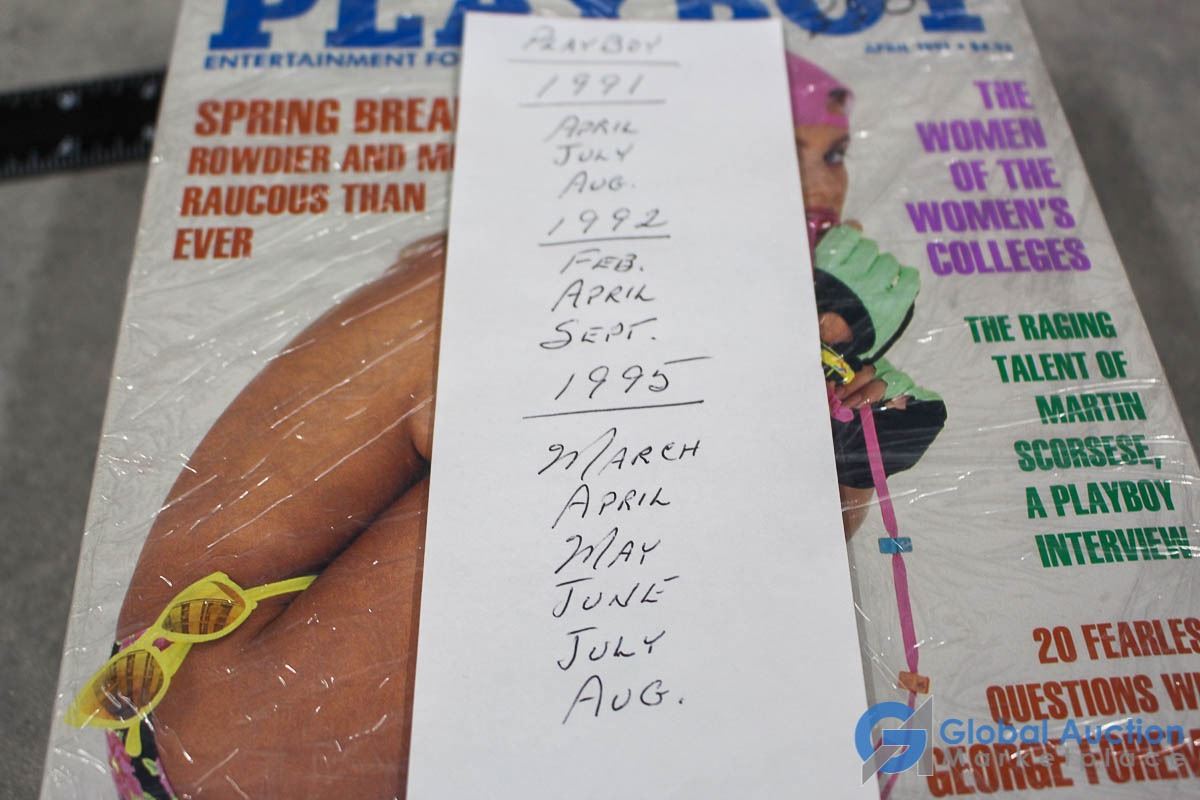 PLAYBOY
ENTERTAINMENT FO
APRIL 1991 • $4.95
SPRING BREA
ROWDIER AND M
RAUCOUS THAN
EVER
PLAYBOY
1991
APRIL
JULY
AUG.
1992
FEB.
APRIL
SEPT.
1995
MARCH
APRIL
MAY
JUNE
JULY
AUG.
THE
WOMEN
OF THE
WOMEN'S
COLLEGES
THE RAGING
TALENT OF
MARTIN
SCORSESE,
A PLAYBOY
INTERVIEW
20 FEARLES
QUESTIONS WI
GEORGE FOREM
Global Auction
Marketplace